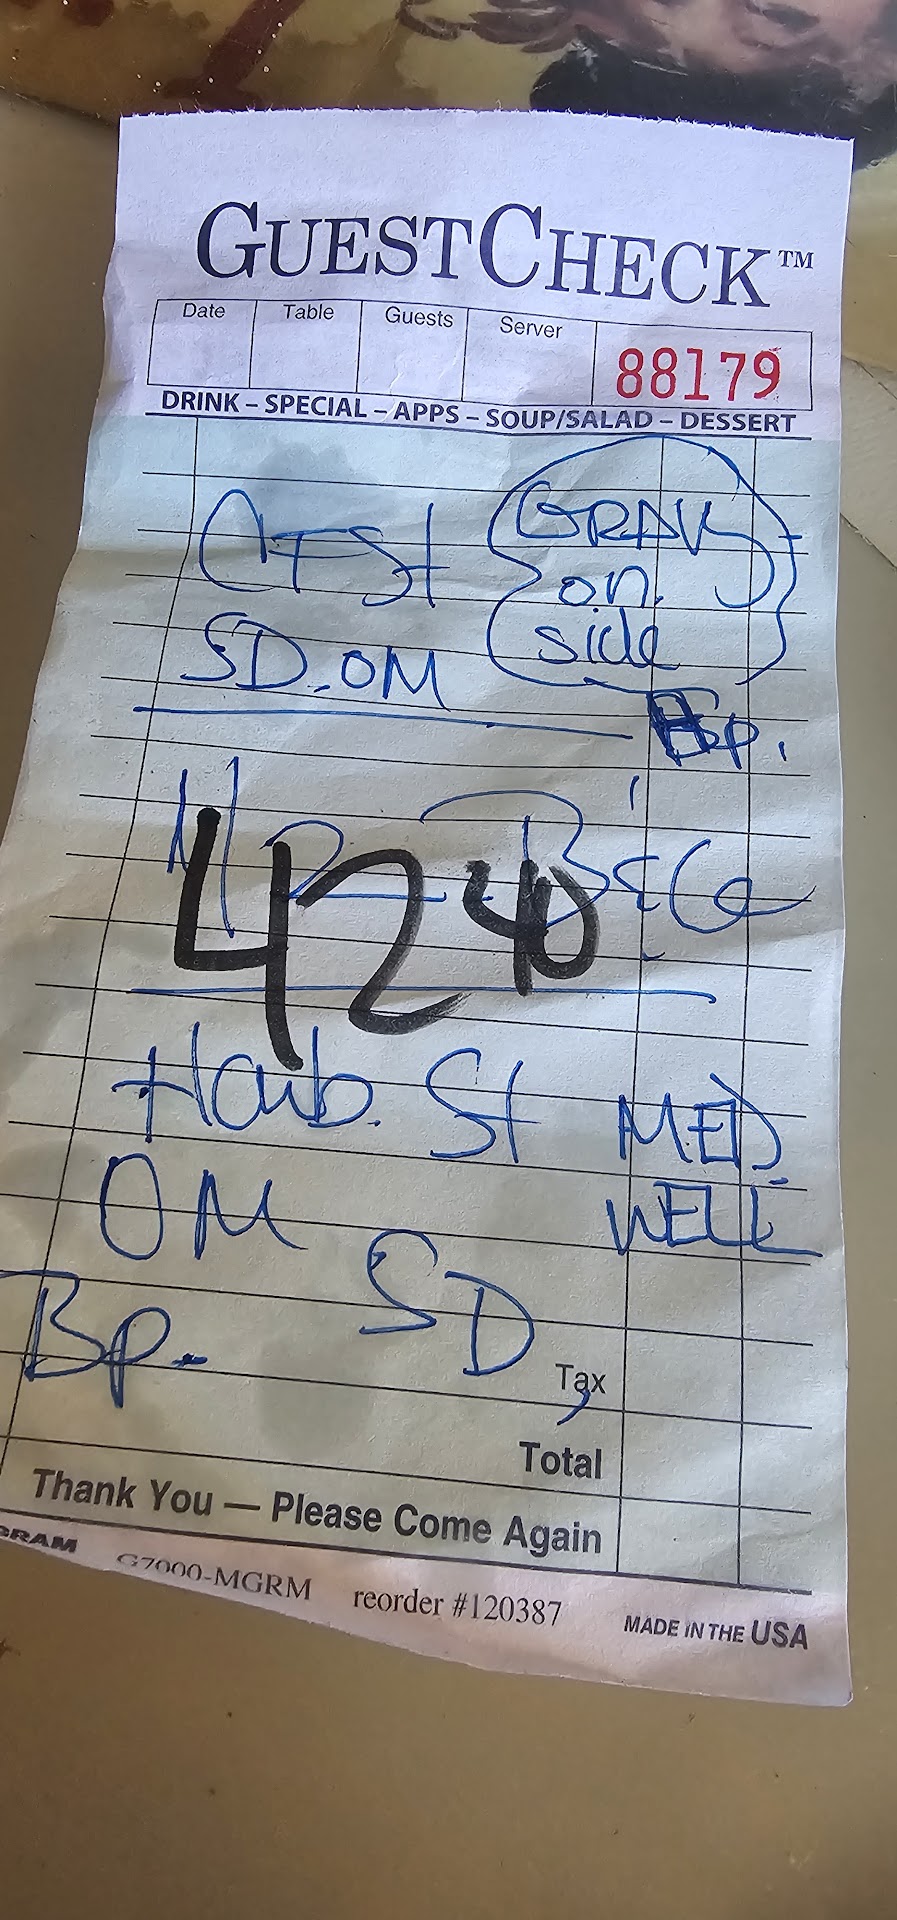 GUESTCHECK™
Date Table Guests Server 88179
DRINK – SPECIAL – APPS – SOUP/SALAD – DESSERT
CFSt GRAVY
on
side
SD. OM
Bp.
4240
Hamb. St MED.
OM WELL
Bp. SD
Tax
Total
Thank You — Please Come Again
GRAM G7000-MGRM reorder #120387 MADE IN THE USA